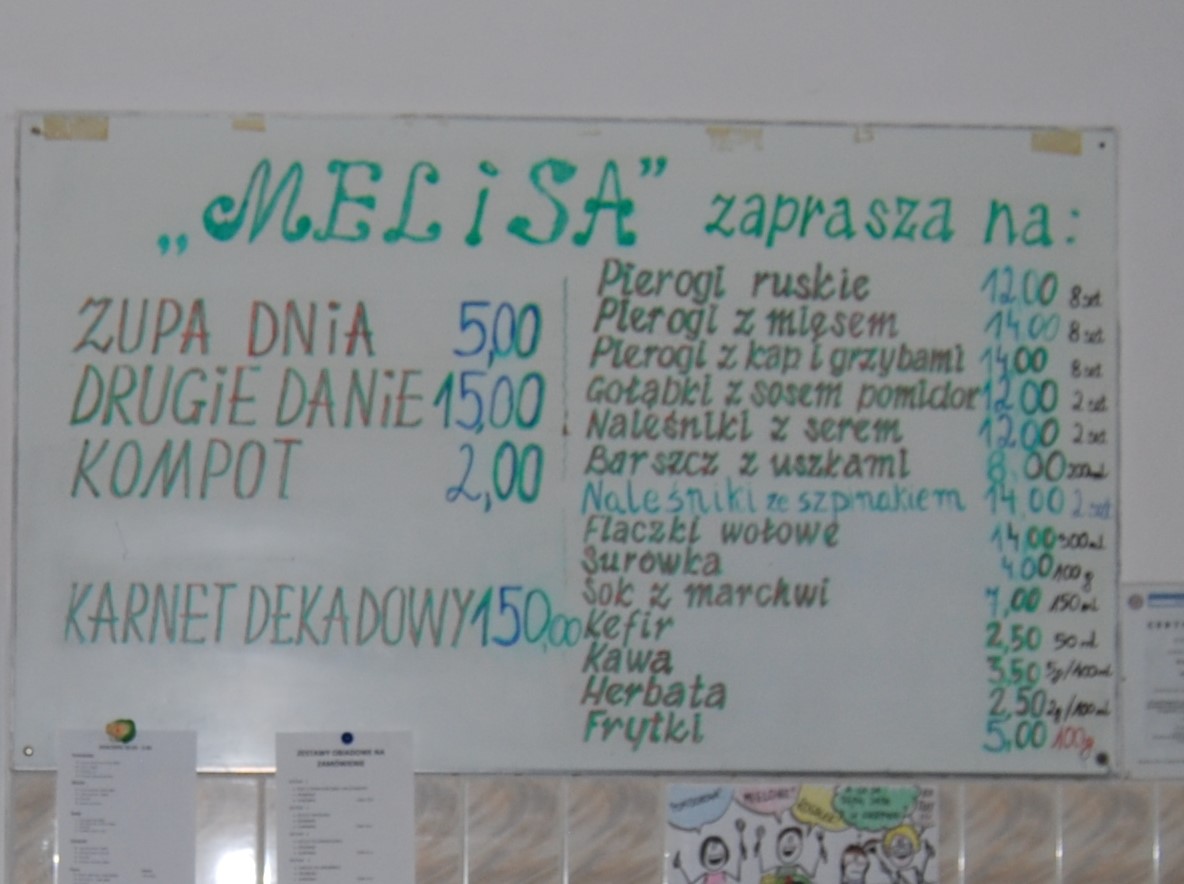 „MELiSA” zaprasza na:
ZUPA DNiA 5,00
DRUGiE DANiE 15,00
KOMPOT 2,00
KARNET DEKADOWY 150,00
Pierogi ruskie 12,00 8szt
Pierogi z mięsem 14,00 8szt
Pierogi z kap i grzybami 14,00 8szt
Gołąbki z sosem pomidor 12,00 2szt
Naleśniki z serem 12,00 2szt
Barszcz z uszkami 8,00 200ml
Naleśniki ze szpinakiem 14,00 2szt
Flaczki wołowe 14,00 500ml
Surówka 4,00 100g
Sok z marchwi 7,00 150ml
Kefir 2,50 50ml
Kawa 3,50 5g/100ml
Herbata 2,50 2g/100ml
Frytki 5,00 100g
ZESTAWY OBIADOWE NA
ZAMÓWIENIE